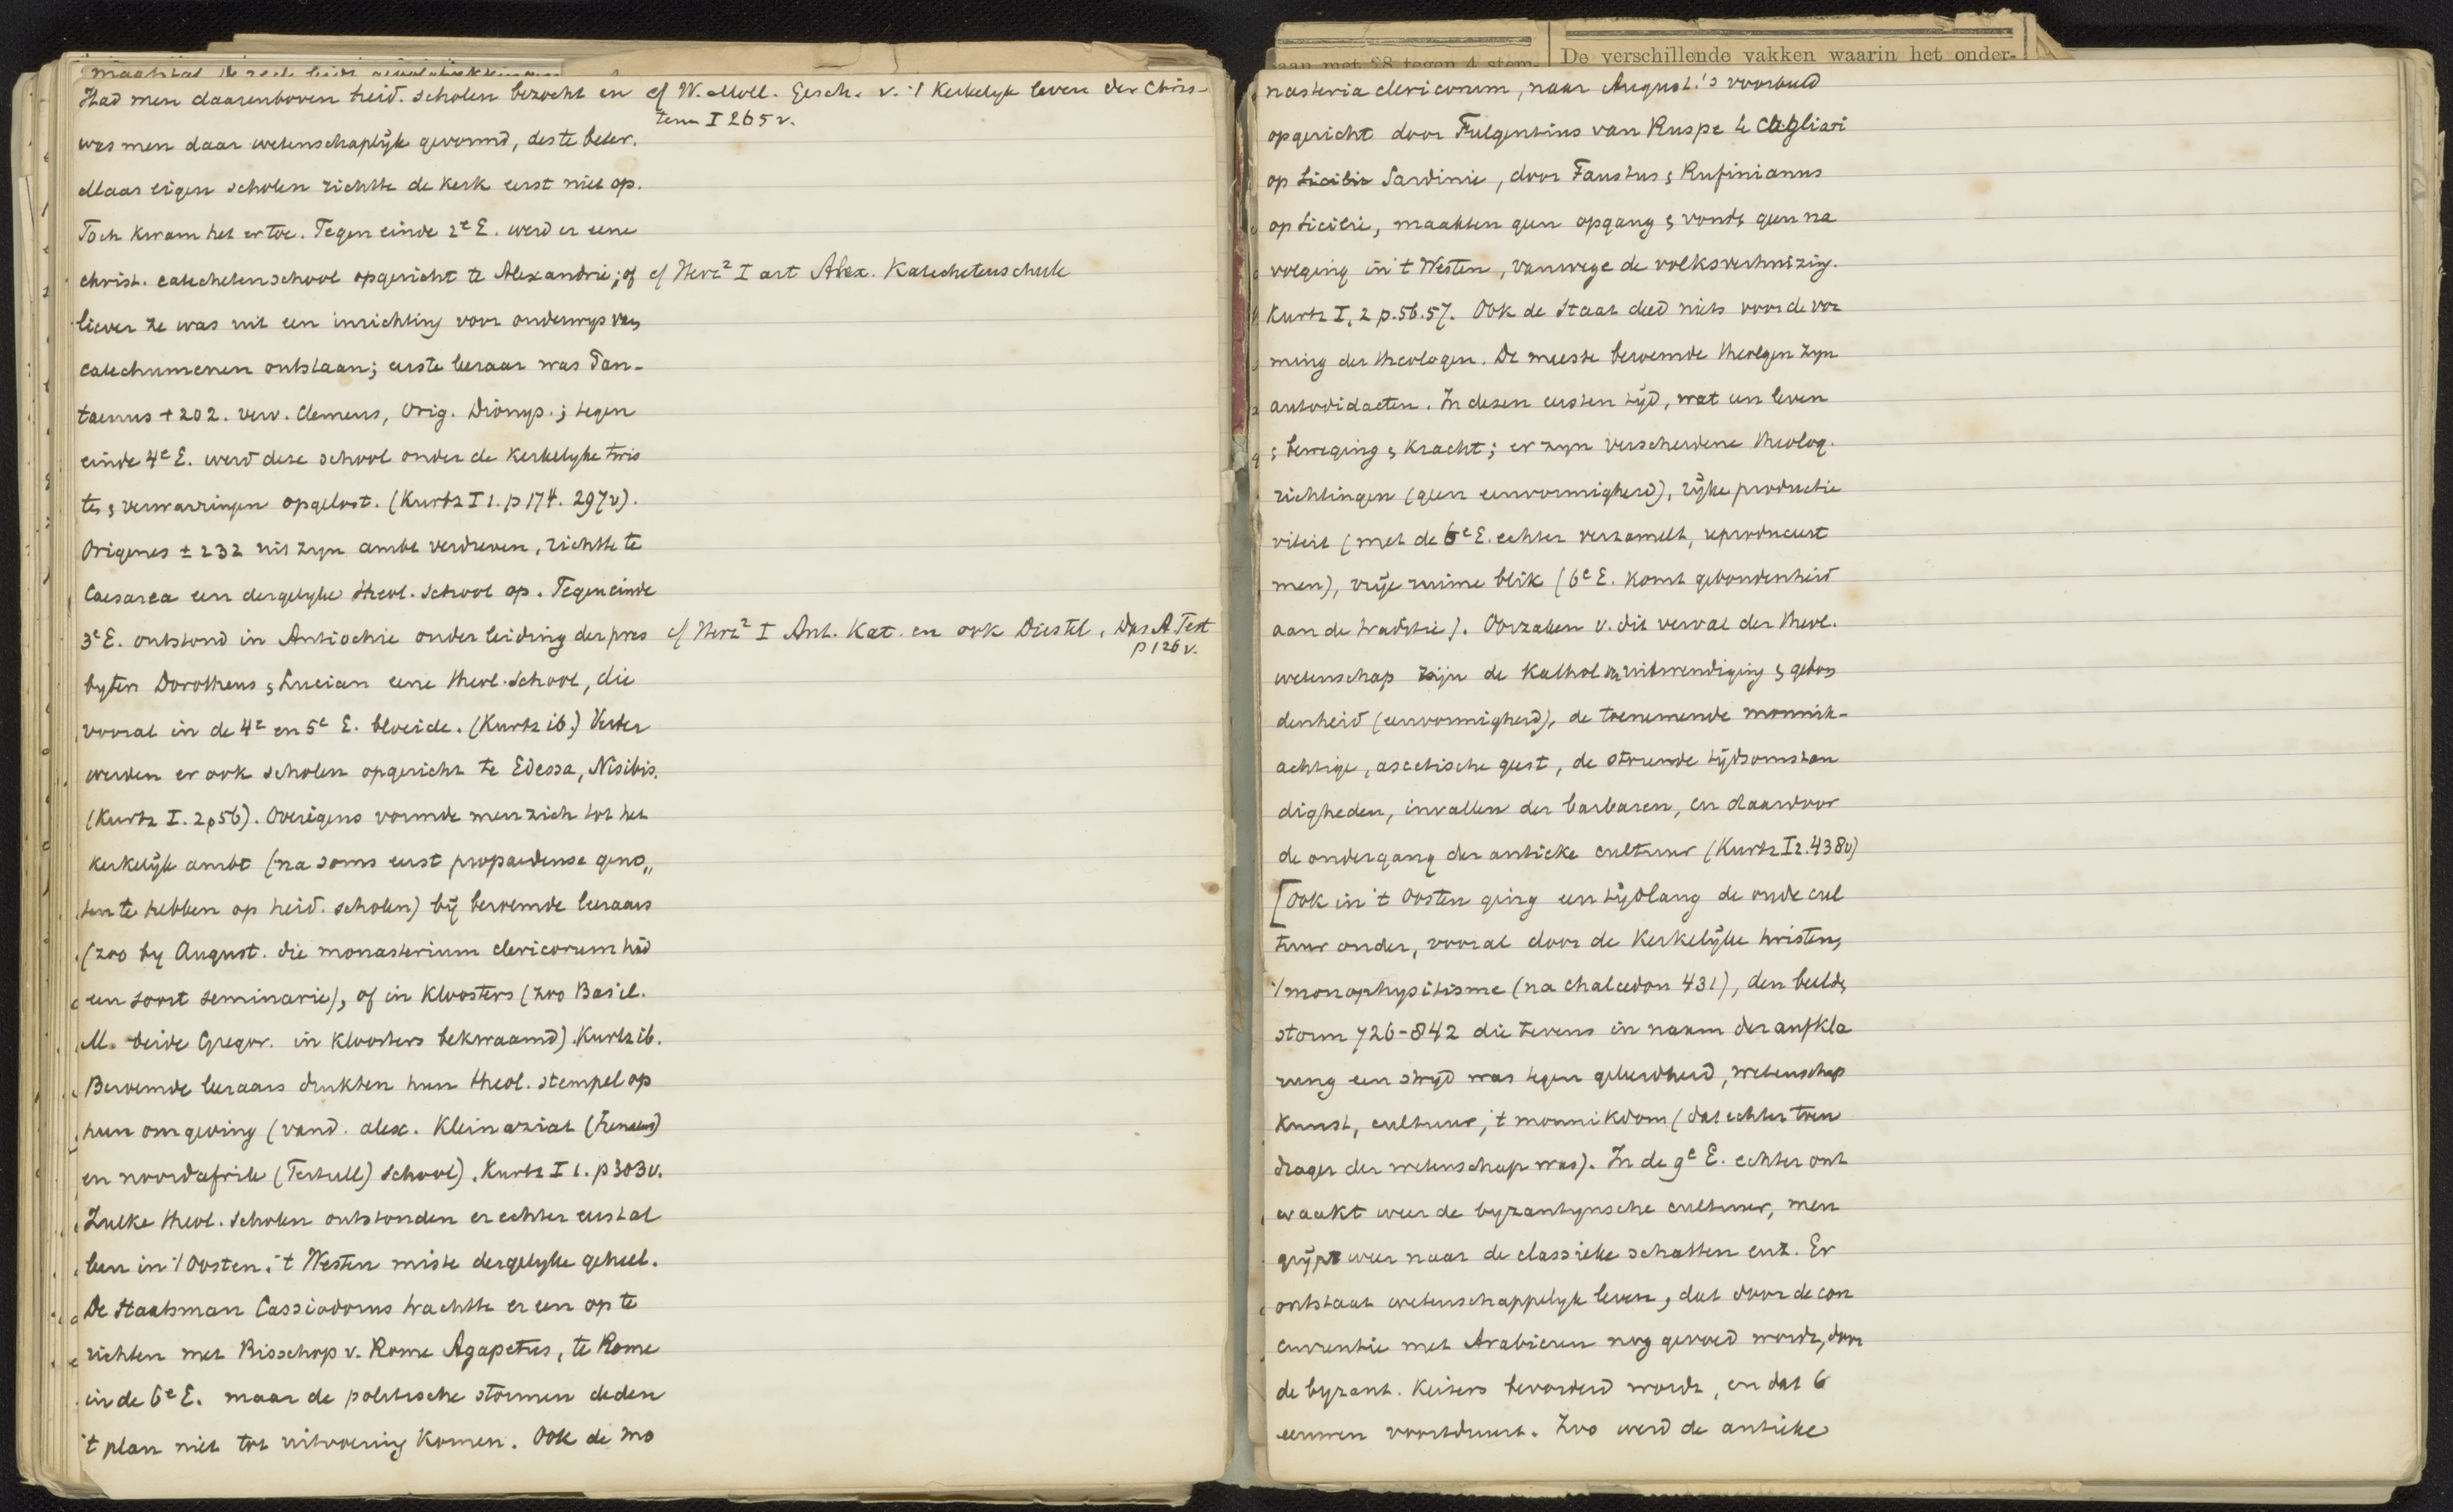 Had men daarenboven heid. scholen bezocht en
was men daar wetenschaplijk gevormd, des te beter.
Maar eigen scholen richtte de kerk eerst niet op.
Toch kwam het er toe. Tegen einde 2e E. werd er eene
christ. catechetenschool opgericht te Alexandrie; of
liever ze was uit een inrichting voor onderwijs van
catechumenen ontstaan; eerste leeraar was Pan-
taenus + 202. verv. Clemens, Orig. Dionys.; tegen
einde 4e E. werd deze school onder de kerkelijke twis
ten & verwarringen opgelost. (Kurtz I 1. p 174. 297v).
Origenes ± 232 uit zijn ambt verdreven, richtte te
Caesarea een dergelyke theol. school op. Tegen einde
3e E. ontstond in Antiochie onder leiding der pres
byters Dorotheus & Lucian eene theol. school, die
vooral in de 4e en 5e E. bloeide. (Kurtz ib.) Verder
werden er ook scholen opgericht te Edessa, Nisibis.
(Kurtz I. 2 p 56). Overigens vormde men zich tot het
kerkelijk ambt (na soms eerst propaedeuse geno„
ten te hebben op heid. scholen) bij beroemde leeraars
(zoo by August. die monasterium clericorum had
een soort seminarie), of in kloosters (zoo Basil.
M. beide Gregor. in kloosters bekwaamd). Kurtz ib.
Beroemde leeraars drukten hun theol. stempel op
hun omgeving (vand. alex. Kleinaziat (Irenaeus)
en noordafrik (Tertull) school). Kurtz I 1. p 303v.
Zulke theol. scholen ontstonden er echter eerst al
leen in 't Oosten. 't Westen miste dergelyke geheel.
De Staatsman Cassiodorus trachtte er een op te
richten met Bisschop v. Rome Agapetus, te Rome
in de 6e E. maar de politische stormen deden
't plan niet tot uitvoering komen. Ook de mo
cf W. Moll. Gesch. v. 't Kerkelyk leven der Chris-
tenen I 265 v.
cf Herz² I art Alex. Katechetenschule
cf Herz² I Ant. Kat. en ook Diestel, Das A. Test
p 126 v.
aan met 28 tegen 4 stem-
De verschillende vakken waarin het onder-
nasteria clericorum, naar August.'s voorbeeld
opgericht door Fulgentius van Ruspe te Cagliari
op Sicilie Sardinie, door Faustus & Rufinianus
op Sicilie, maakten geen opgang & vonden geen na
volging in 't Westen, vanwege de volksverhuizing.
Kurtz I, 2 p. 56. 57. Ook de Staat deed niets voor de vor
ming der theologen. De meeste beroemde theologen zyn
autodidacten. In dezen eersten tijd, wat een leven
& beweging & kracht; er zyn verscheidene theolog.
richtingen (geen eenvormigheid), rijke productie
viteit (met de 6e E. echter verzamelt, reproduceert
men), vrije ruime blik (6e E. komt gebondenheid
aan de traditie). Oorzaken v. dit verval der theol.
wetenschap zijn de Kathol. veruitwendiging & gebon
denheid (eenvormigheid), de toenemende monnik-
achtige, ascetische geest, de storende tijdsomstan
digheden, invallen der barbaren, en daardoor
de ondergang der antieke cultuur (Kurtz I 2. 438v)
[Ook in 't Oosten ging een tijdlang de oude cul
tuur onder, vooral door de kerkelijke twisten,
't monophysitisme (na Chalcedon 431), den beelden
storm 726-842 die tevens in naam der aufkla
rung een strijd was tegen geleerdheid, wetenschap
kunst, cultuur, 't monnikdom (dat echter toen
drager der wetenschap was). In de 9e E. echter ont
waakt weer de byzantynsche cultuur, men
grijpt weer naar de classieke schatten enz. Er
ontstaat wetenschappelyk leven, dat door de con
currentie met Arabieren nog gevoed wordt, door
de byzant. keizers bevorderd wordt, en dat 6
eeuwen voortduurt. Zoo werd de antieke